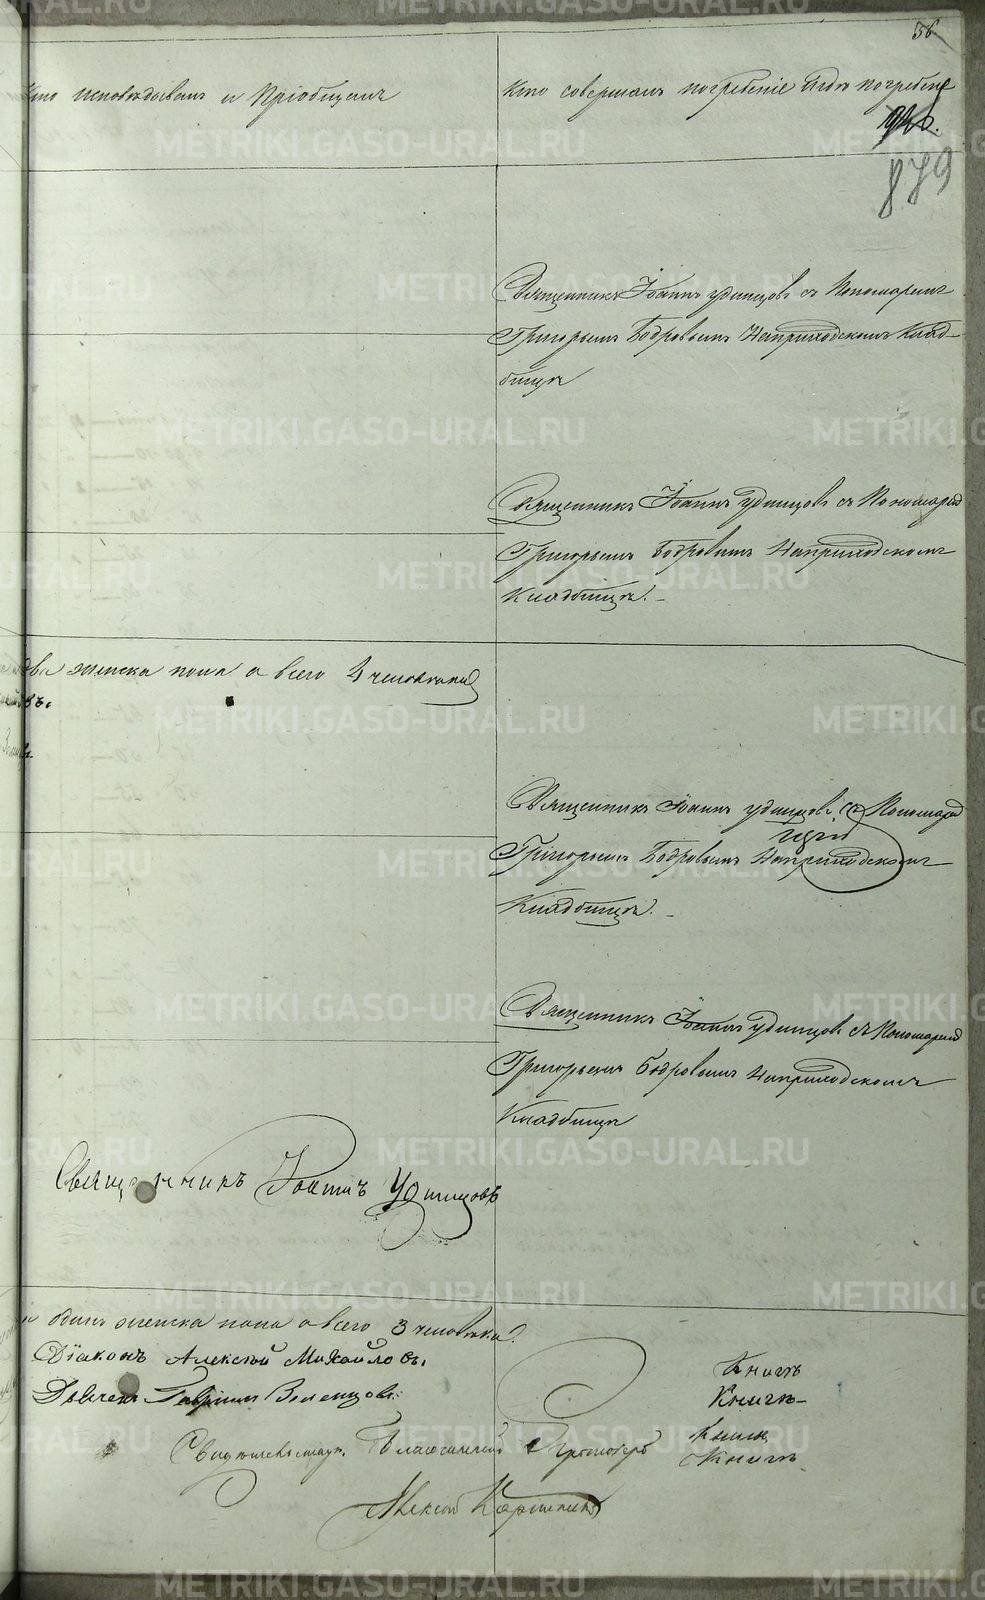 56
Кто исповѣдывалъ и Пріобщалъ
Кто совершалъ погребеніе и гдѣ погребены
920.
879
Священникъ Іоаннъ Удинцовъ съ Пономаремъ
Григорьемъ Бодровымъ На приходскомъ Клад-
бищѣ
Священникъ Іоаннъ Удинцовъ съ Пономаремъ
Григорьемъ Бодровымъ На приходскомъ
Кладбищѣ. –
два женска пола а всего 4 человѣка
въ.
Священникъ Іоаннъ Удинцовъ съ Пономаремъ
Григорьемъ Бодровымъ На приходскомъ
Кладбищѣ. –
Священникъ Іоаннъ Удинцовъ съ Пономаремъ
Григорьемъ Бодровымъ На приходскомъ
Кладбищѣ
Священникъ Іоаннъ Удинцовъ
одинъ женска пола а всего 3 человѣка.
Діаконъ Алексѣй Михайловъ.
Дьячекъ Гавріилъ
Свидѣтельствовалъ Благочинный Протоіерей
Алексей
Книгъ
Книгъ
Книгъ
METRIKI.GASO-URAL.RU